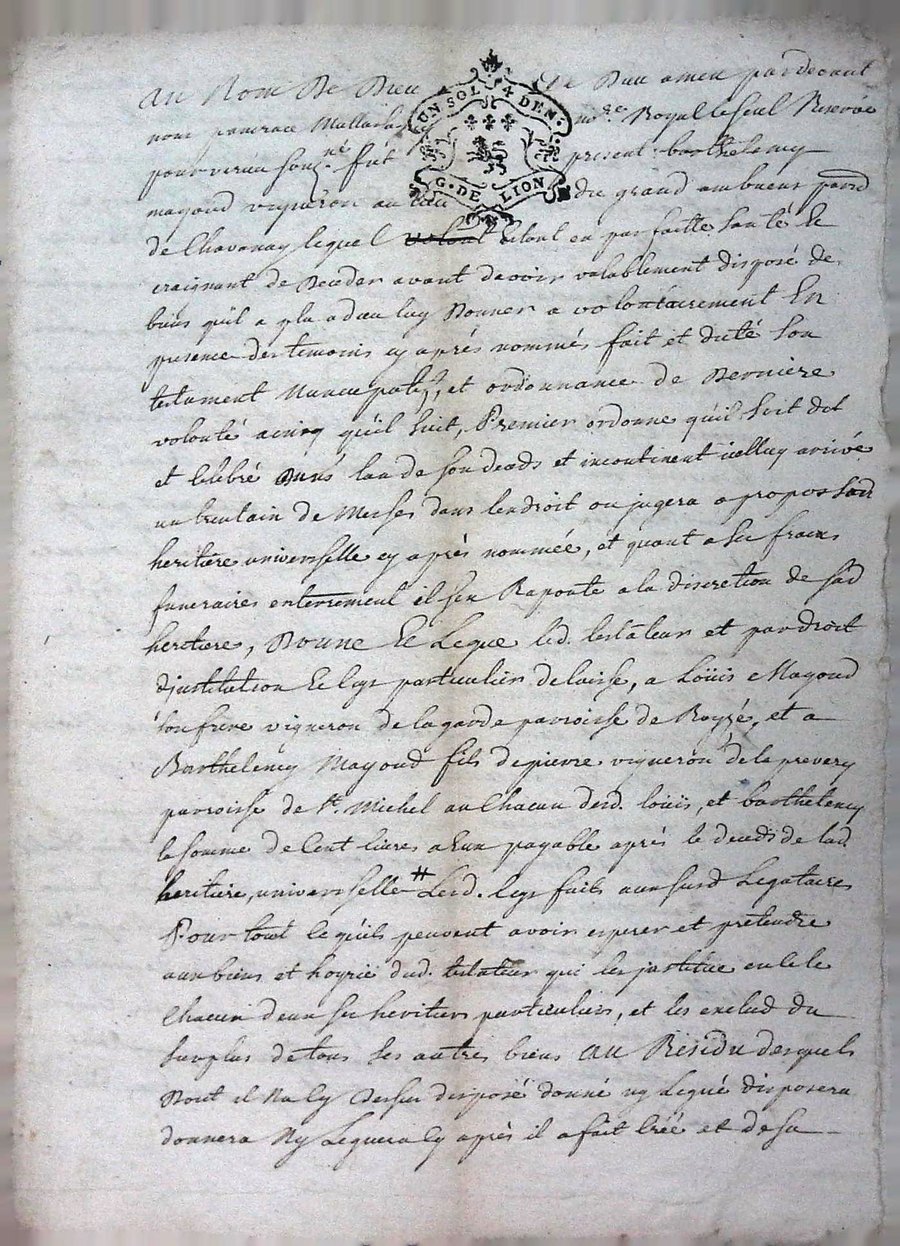 au Nom De Dieu De Dieu amen pardevant
nous Royal Reservé
pour vieu soug.né fut present barthelemy
mayoud vigneron au lieu du grand parr
UN SOL 4 DEN.
G. DE LION
de Chavanay lequel volont Estant en parfaitte santé Et
craignant de Deceder avant davoir valablement disposé de
biens quil a plu a dieu luy Donner a volontairement En
presence des temoins cy après nommés fait et dicté son
testament Nuncupatif, et ordonnance de Derniere
volonté ainsy qu'il suit, Premier ordonne qu'il soit dit
et Celebré Dans lan de son deceds et incontinent icelluy arrivé
un trentain de Messes dans lendroit ou jugera a propos sad
heritiere universelle cy après nommée, et quant a ses fraix
funeraires enterrement il sen Raporte a la discretion de sad
heritiere, Donne Et Legue led. testateur et par droit
d'institution Et legs particulier delaisse, a Loüis Mayoud
son frere vigneron de la garde parroisse de Royzé, et a
Barthelemy Mayoud fils de pierre vigneron de la prevery
parroisse de St. Michel au Chacun desd. loüis, et barthelemy
la somme de Cent livres a Eux payable après le deceds de lad
heritiere, universelle # Lesd. legs faits aux susd Legataires
Pour tout ce qu'ils peuvent avoir esperer et pretendre
aux biens et hoyrie dud. testateur qui les institue en ce
Chacun deux ses heritiers particuliers, et les exclud du
surplus de tous ses autres biens au Residu desquels
Dont il Na Cy Dessus disposé donné ny Legué disposera
donnera Ny Leguera Cy après il a fait Créé et de sa